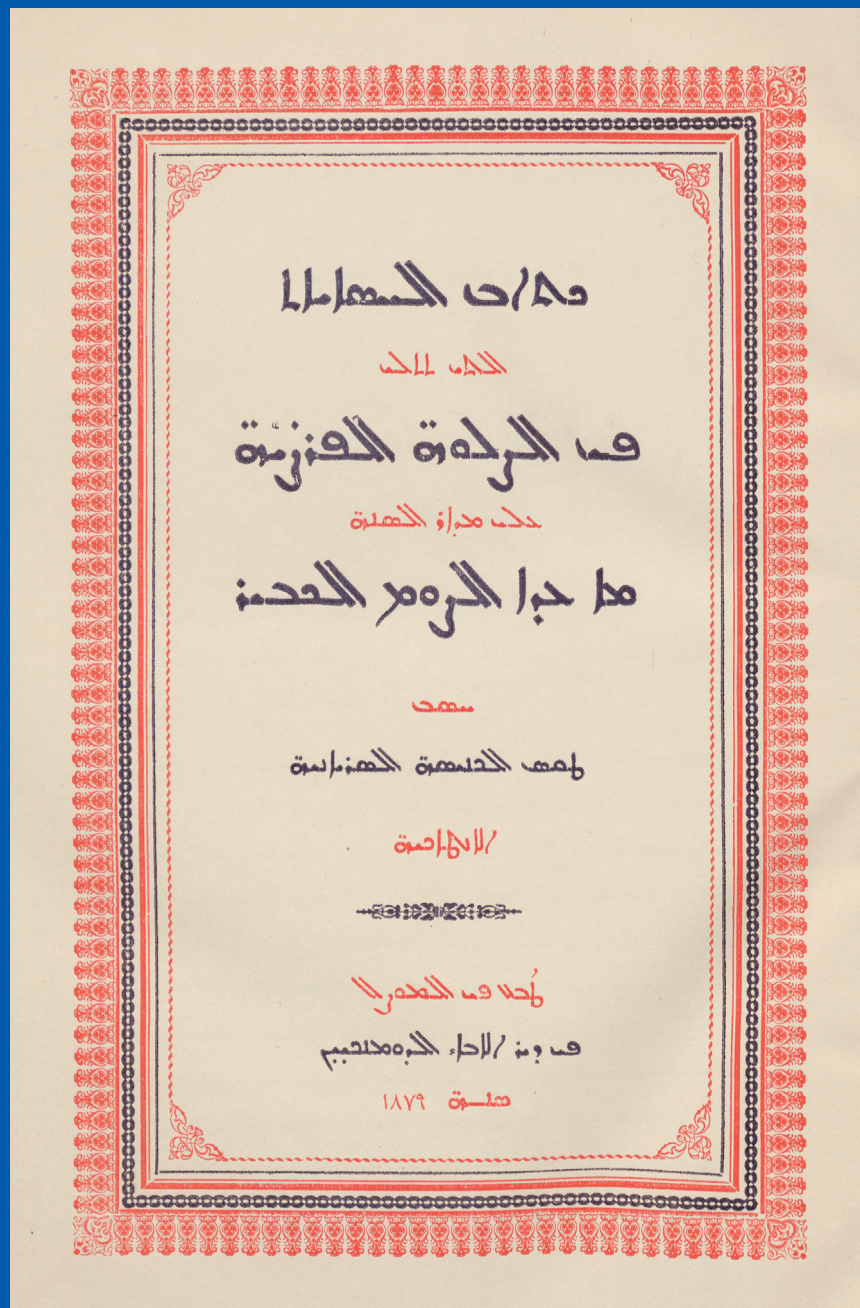 ܟܬܐܒ ܐܠܚܣܐܝܐܬ
ܐܠܬܝ ܬܬܠܝ
ܦܝ ܐܠܨܠܘܗ̈ ܐܠܦܪܨ̇ܝܗ̈
ܥܠܝ ܡܕܐܪ ܐܠܣܢܗ̈
ܡܐ ܥܕܐ ܐܠܨܘܡ ܐܠܟܒܝܪ
ܚܣܒ
ܛܩܣ ܐܠܟܢܝܣܗ̈ ܐܠܣܪܝܐܢܝܗ̈
ܐܠܐܢܛܐܟܝܗ̈
ܛُܒܥ ܦܝ ܐܠܡܘܨܠ
ܦܝ ܕܝܪ ܐܠܐܒܐء ܐܠܕܘܡܢܟܝܝܢ
ܣܢܗ̈ ١٨٧٩